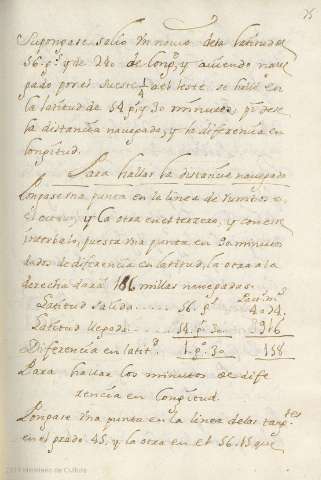 75
Supongase salio Vn navio de la latitud de
56. g.s y de 240 de long.d, y aviendo nave
gado por el sueste 1/4 al leste se halló en
la latitud de 54 g.s y 30 minutos, pidese
la distancia navegada, y la diferencia en
longitud.
Para hallar la distancia navegada
Pongase vna punta en la linea de rumbos en
y la otra en el terzero, y con este
interbalo, puesta vna punta en 90 minutos
dados de diferencia en latitud, la otra a la
derecha dara 186 millas navegadas.
Latitud salida . . . . . 56. g.s 4074
Latitud llegada . . . . 54. g.s 30 3916
Diferencia en latit.d 1. g.o 30 158
Para hallar los minutos de dife
rencia en longitud.
Pongase vna punta en la linea de las tang.tes
en el grado 45, y la otra en el 56.15 que
2009 Ministerio de Cultura